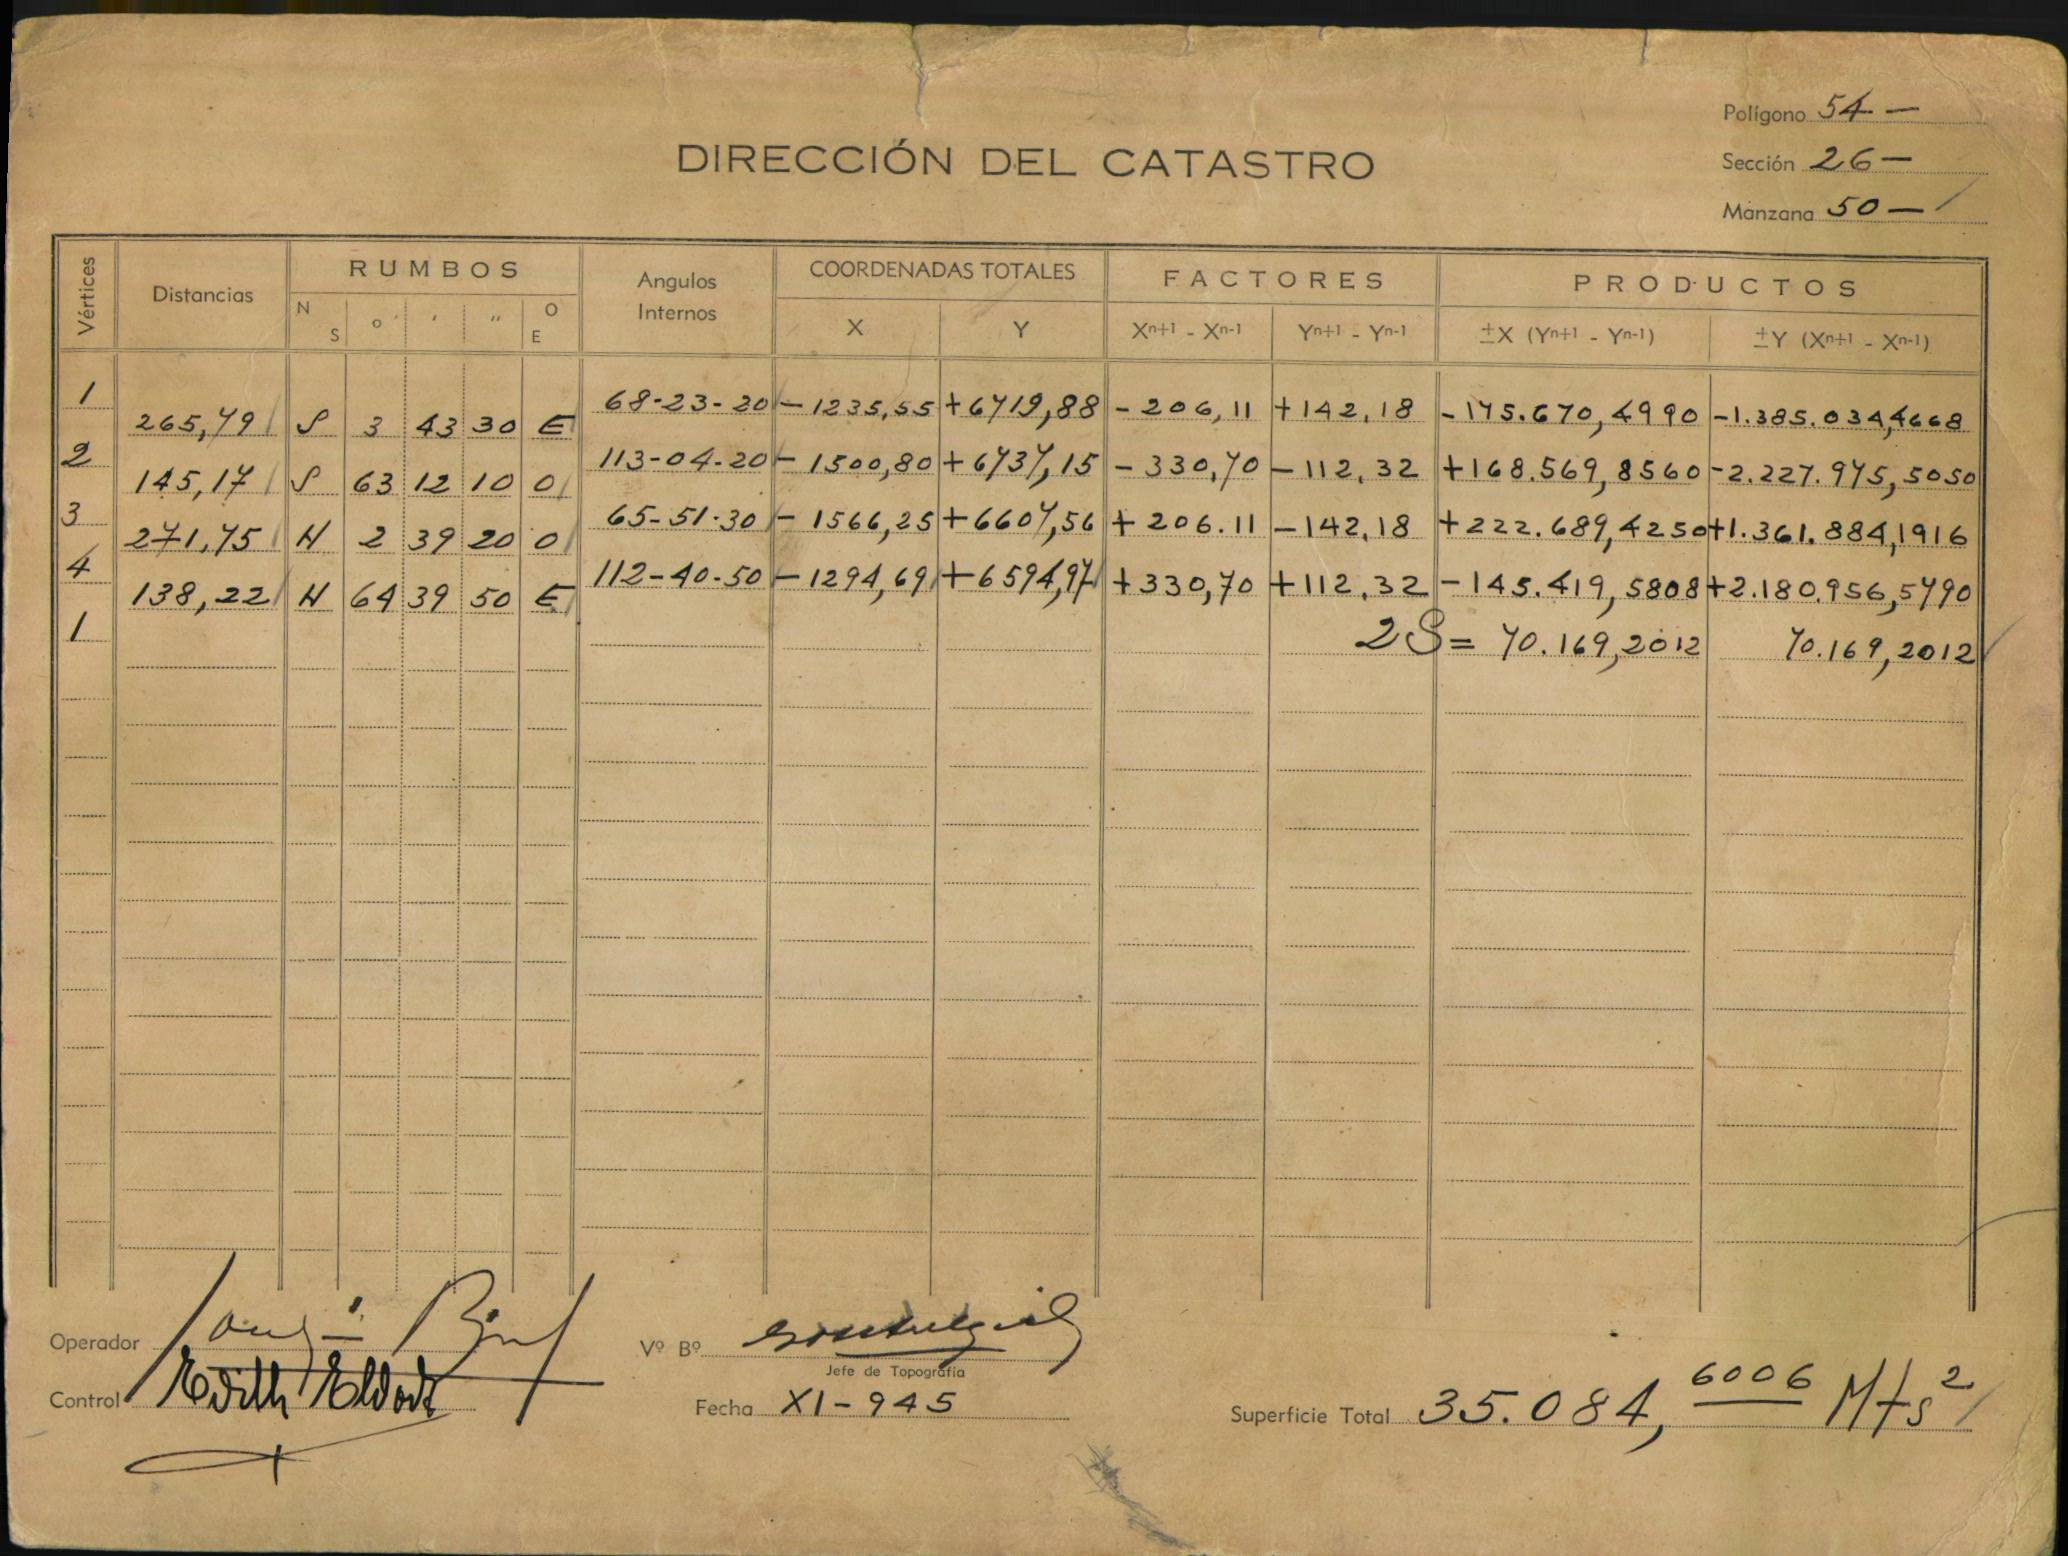 Polígono 54 —
Sección 26 —
Manzana 50 —
DIRECCIÓN DEL CATASTRO
Vértices Distancias RUMBOS Angulos Internos COORDENADAS TOTALES FACTORES PRODUCTOS
N S o ' " O E X Y Xn+1 - Xn-1 Yn+1 - Yn-1 ±X (Yn+1 - Yn-1) ±Y (Xn+1 - Xn-1)
1 68-23-20 -1235,55 +6719,88 -206,11 +142,18 -175.670,4990 -1.385.034,4668
265,79 S 3 43 30 E
2 113-04-20 -1500,80 +6737,15 -330,70 -112,32 +168.569,8560 -2.227.975,5050
145,17 S 63 12 10 O
3 65-51-30 -1566,25 +6607,56 +206.11 -142,18 +222.689,4250 +1.361.884,1916
271,75 N 2 39 20 O
4 112-40-50 -1294,69 +6594,97 +330,70 +112,32 -145.419,5808 +2.180.956,5790
138,22 N 64 39 50 E
1 2S = 70.169,2012 70.169,2012
Operador
Vº Bº
Jefe de Topografía
Control Edith
Fecha XI-945
Superficie Total 35.084,6006 Mts2